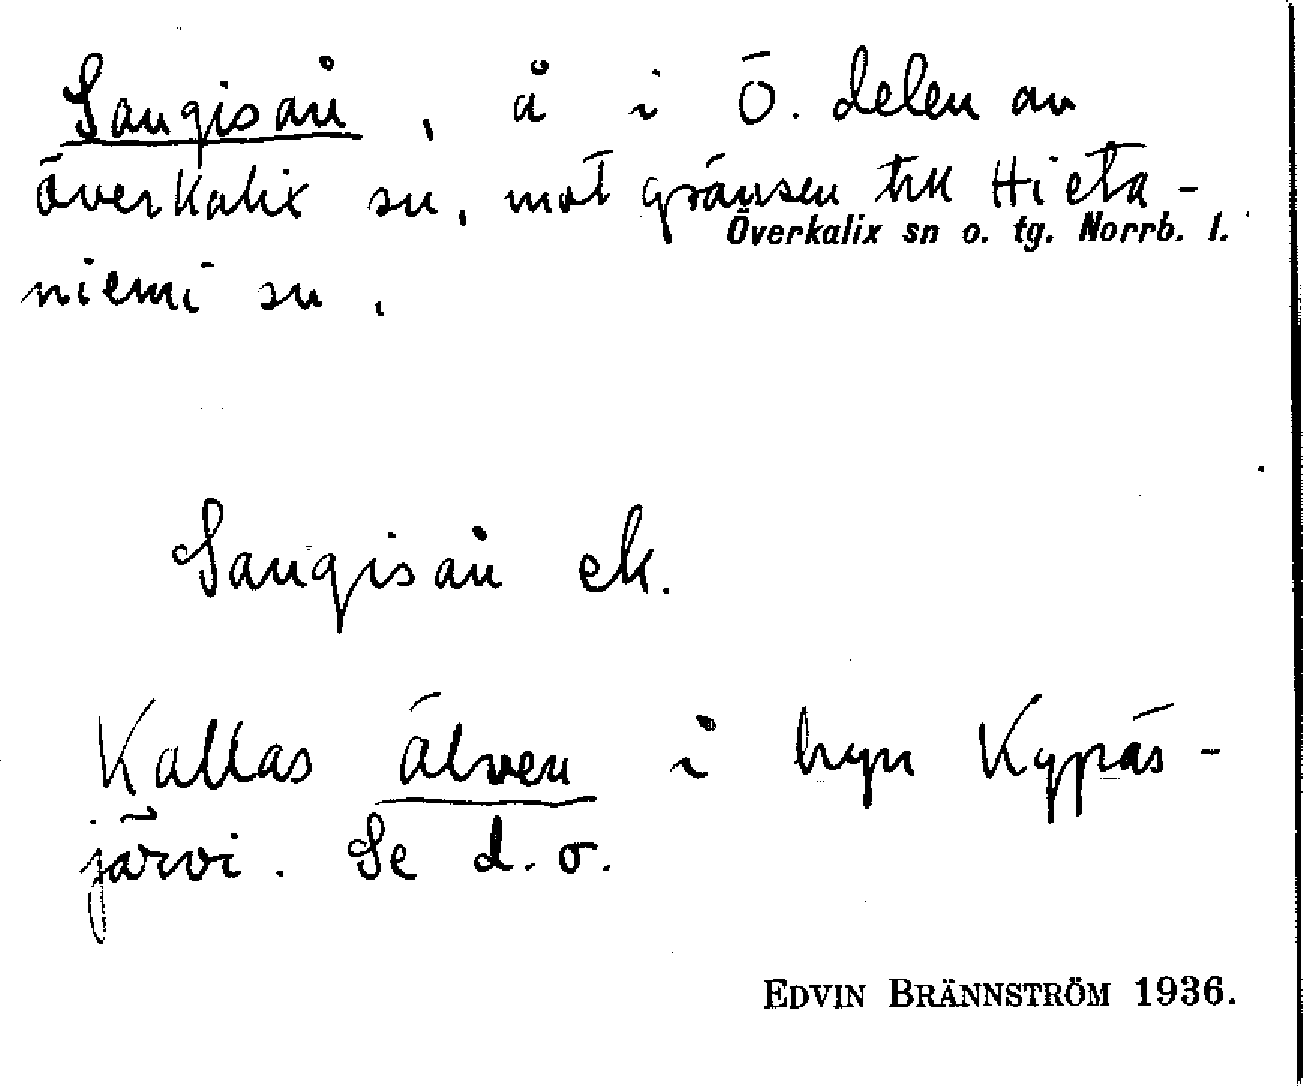 Sangisån, å i Ö. delen av
överkalix sn, mot gränsen till Hieta-
Överkalix sn o. tg. Norrb. l.
niemi sn.
Sangisån ek.
Kallas älven i byn Kypäs-
järvi. Se d. o.
EDVIN BRÄNNSTRÖM 1936.